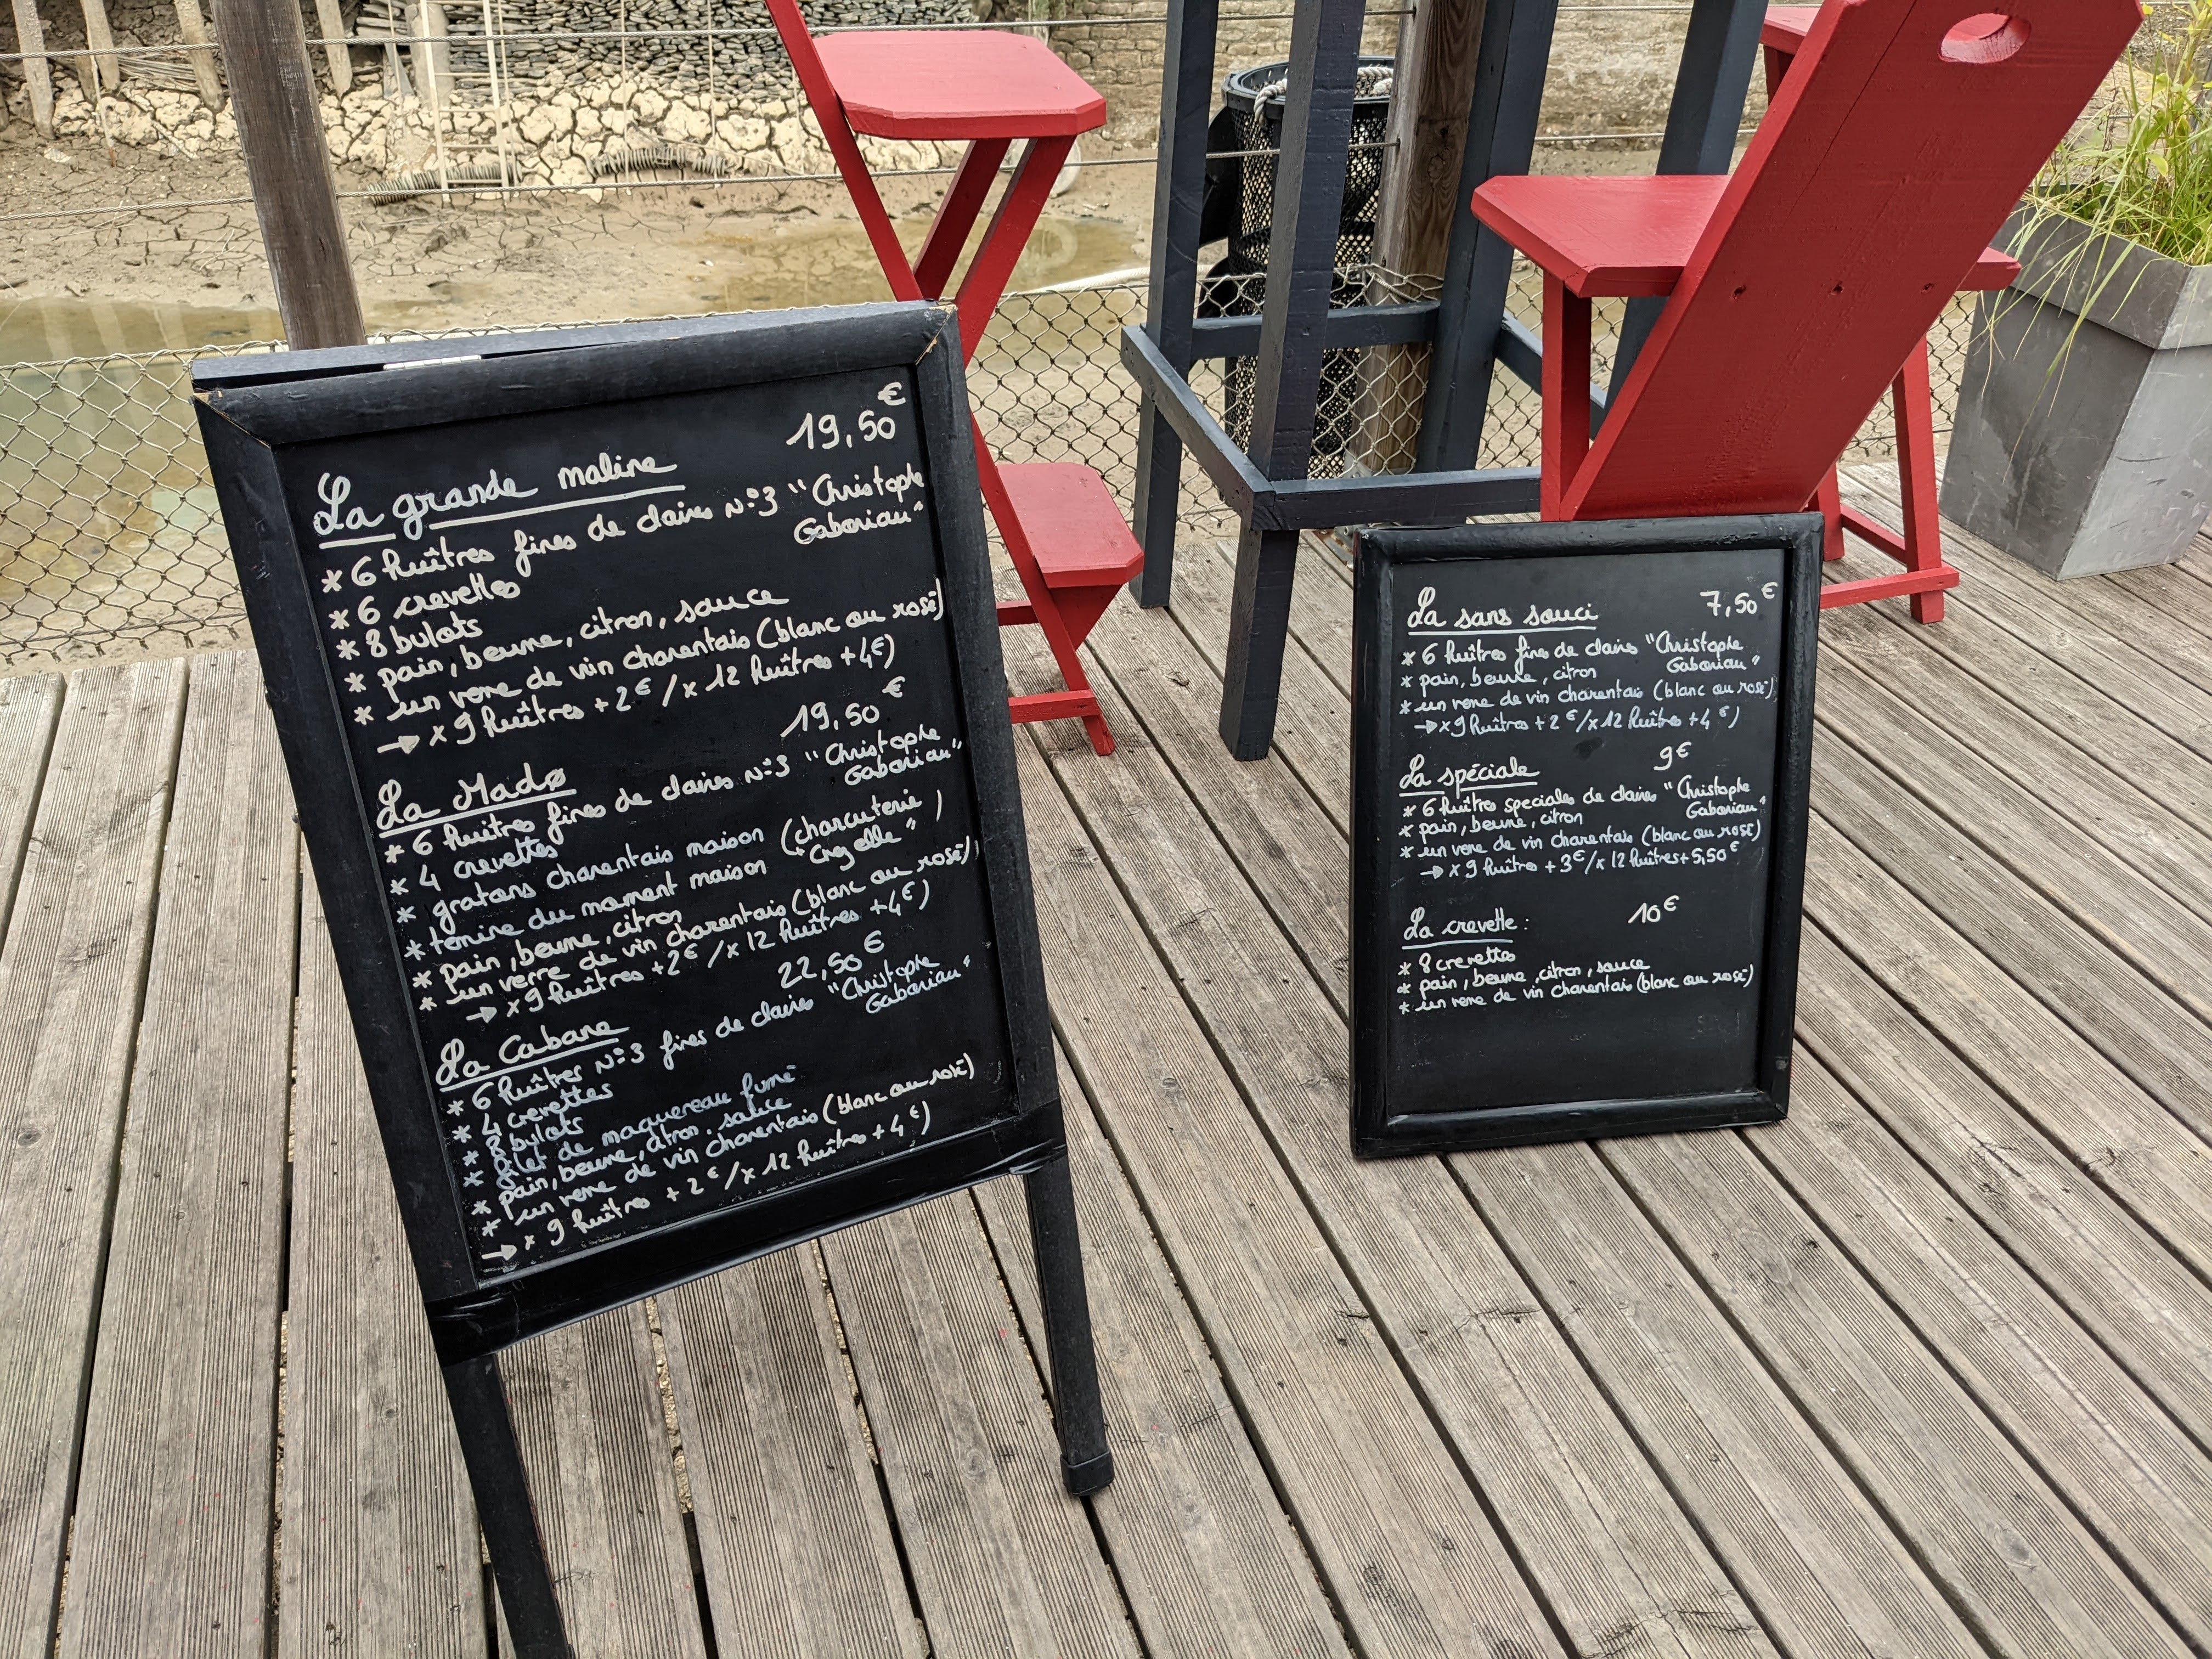 19,50€
La grande maline
* 6 huîtres fines de claires N°3 "Christophe
Gaboriau"
* 6 crevettes
* 8 bulots
* pain, beurre, citron, sauce
* un verre de vin charentais (blanc ou rosé)
→ x 9 huîtres + 2€ / x 12 huîtres + 4€)
19,50€
La Mado
* 6 huîtres fines de claires N°3 "Christophe
Gaboriau"
* 4 crevettes
* gratons charentais maison (charcuterie
* terrine du moment maison
)
* pain, beurre, citron
* un verre de vin charentais (blanc ou rosé)
→ x 9 huîtres + 2€ / x 12 huîtres + 4€)
22,50€
La Cabane
* 6 huîtres N°3 fines de claires "Christophe
Gaboriau"
* 4 crevettes
* 8 bulots
* filet de maquereau fumé
* pain, beurre, citron, sauce
* un verre de vin charentais (blanc ou rosé)
→ x 9 huîtres + 2€ / x 12 huîtres + 4€)
La sans souci 7,50€
* 6 huîtres fines de claires "Christophe
Gaboriau"
* pain, beurre, citron
* un verre de vin charentais (blanc ou rosé)
→ x 9 huîtres + 2€ / x 12 huîtres + 4€)
La spéciale 9€
* 6 huîtres speciales de claires "Christophe
Gaboriau"
* pain, beurre, citron
* un verre de vin charentais (blanc ou rosé)
→ x 9 huîtres + 3€ / x 12 huîtres + 5,50€
La crevette : 10€
* 8 crevettes
* pain, beurre, citron, sauce
* un verre de vin charentais (blanc ou rosé)